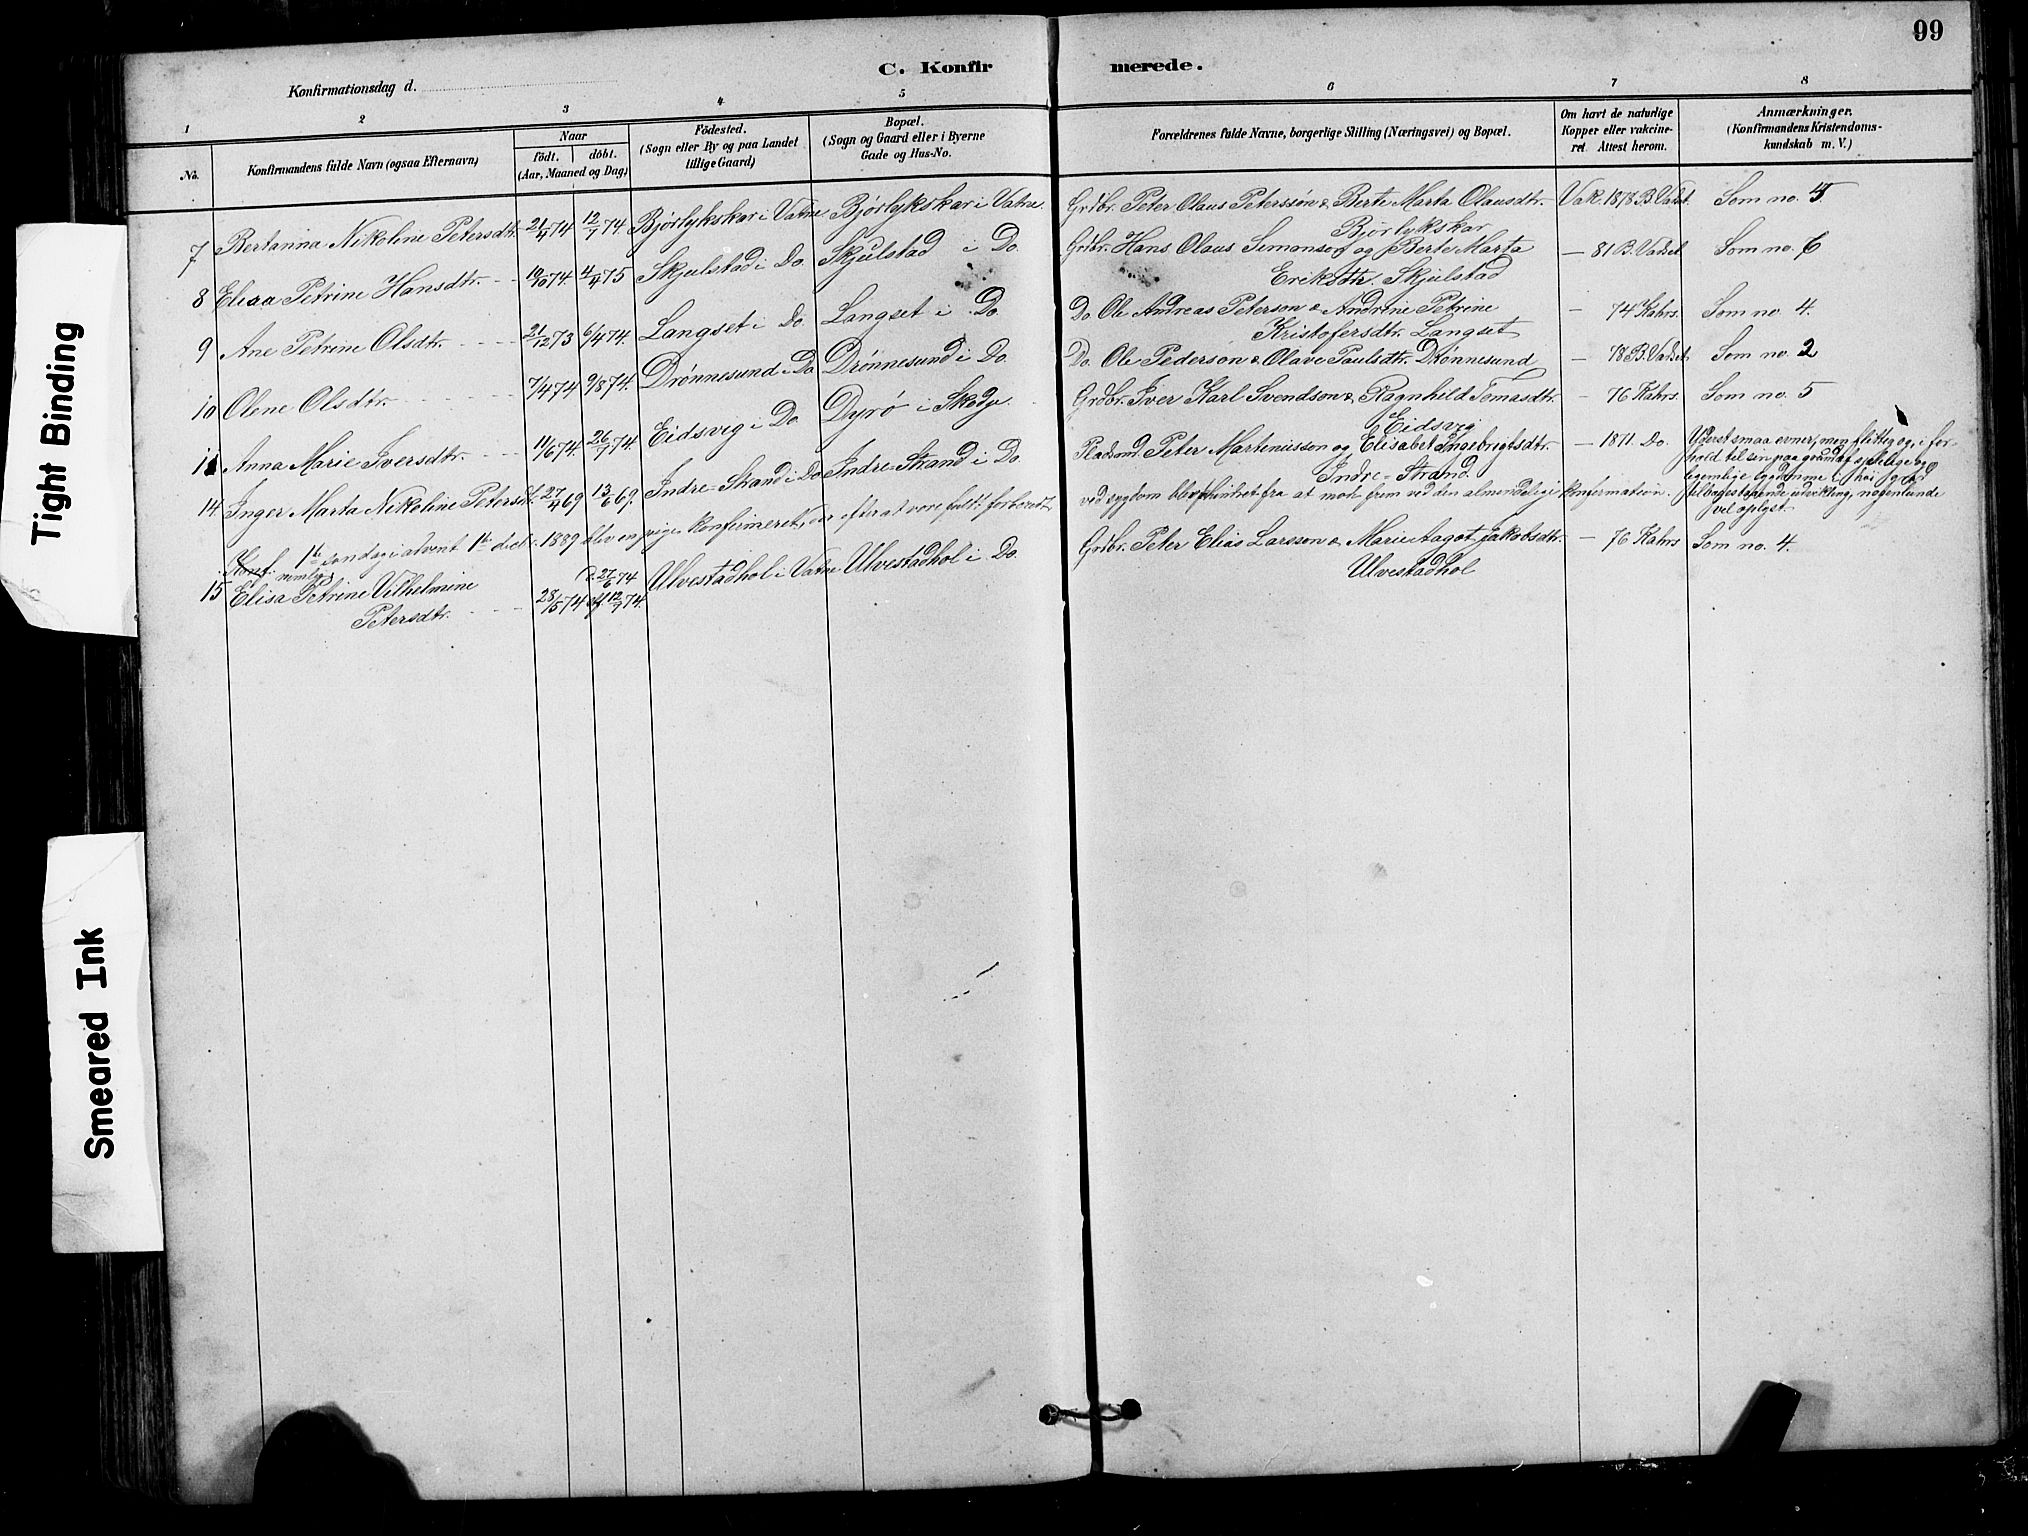 99
C. Konfirmerede.
Konfirmationsdag d.
1 2 3 4 5 6 7 8
No.
Konfirmandens fulde Navn (ogsaa Efternavn)
Naar
födt. döbt.
(Aar, Maaned og Dag)
Födested.
(Sogn eller By og paa Landet
tillige Gaard)
Bopæl.
(Sogn og Gaard eller i Byerne
Gade og Hus-No.
Forældrenes fulde Navne, borgerlige Stilling (Næringsvei) og Bopæl.
Om havt de naturlige
Kopper eller vakcine-
ret. Attest herom.
Anmærkninger.
(Konfirmandens Kristendoms-
kundskab m. V.)
7 Bertanna Nikoline Petersdtr. 21/4 74 12/7 74 Bjørlykskar i Vatne Bjørlykskar i Vatne. Grdbr. Peter Olaus Peterssøn & Berte Marta Olausdtr. Vak. 1878 B. Vadset Som no. 5
Bjørlykskar
8 Elisa Petrine Hansdtr. 19/10 74. 4/4 75 Skjulstad i Do. Skjulstad i Do. Grdbr. Hans Olaus Simonson og Berte Marta — 81 B. Vadset Som no. 6
Eriksdtr. Skjulstad
9 Ane Petrine Olsdtr. 21/12 73 6/4 74. Langset i Do. Langset i Do. Do. Ole Andreas Peterson & Andrine Petrine — 74 Kahrs. Som no. 4.
Kristofersdtr. Langset
10 Olene Olsdtr. 7/4 74 9/8 74. Drønnesund i Do. Drønnesund i Do. Do. Ole Pederson & Olave Paulsdtr. Drønnesund — 78 B. Vadset Som no. 2
11 Anna Marie Iversdtr. 11/6 74. 26/7 74. Eidsvig i Do. Dyrø i Skodje. Grdbr. Iver Karl Svendson & Ragnhild Tomasdtr. — 76 Kahrs. Som no. 5
Eidsvig
14 Inger Marta Nikoline Petersdt. 27/4 69 13/6 69. Indre-Strand i Do. Indre-Strand i Do. Pladsmd. Peter Martinusson og Elisabet Ingebrigtsdtr. — 1871. Do. Yderst smaa evner, men flittig og, i for-
Indre-Strand. hold til sin paa grund af sjelelige og
legemlige sygdomme i høi grad
tilbagestaaende udvikling, nogenlunde
vel oplyst.
Konf. 1ste søndag i advent 1ste decbr. 1889 blev en pige konfirmeret, der efter at være fuldt forberedt, ved sygdom blev hindret fra at møde frem ved den almindelige konfirmation.
nemlig
15 Elisa Petrine Vilhelmine 28/5 74 D. 27/6 74 Ulvestadhol i Vatne Ulvestadhol i Do. Grdbr. Peter Elias Larsson & Marie Aagot Jakobsdtr. — 76 Kahrs Som no. 4.
Petersdtr. 12/7 74. Ulvestadhol
Tight Binding
Smeared Ink